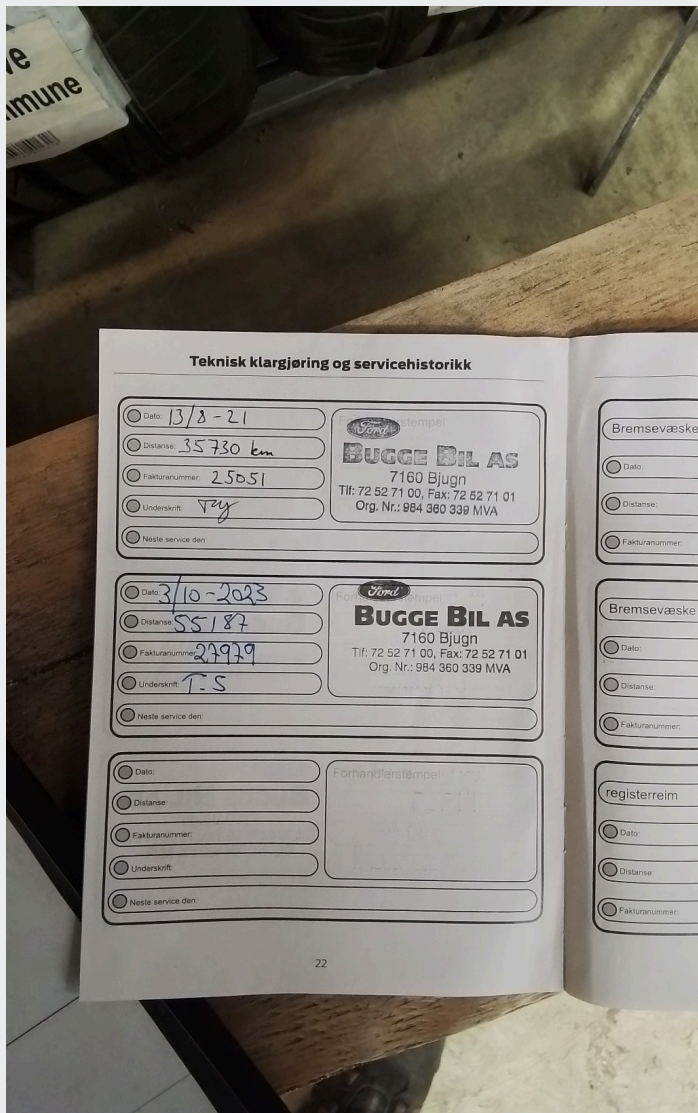 mmune
Teknisk klargjøring og servicehistorikk
Dato: 13/8-21
Distanse: 35730 km
Fakturanummer: 25051
Underskrift:
Neste service den:
Ford
BUGGE BIL AS
7160 Bjugn
Tlf: 72 52 71 00, Fax: 72 52 71 01
Org. Nr.: 984 360 339 MVA
Dato: 3/10-2023
Distanse: 55187
Fakturanummer: 27979
Underskrift: T.S
Neste service den:
Ford
BUGGE BIL AS
7160 Bjugn
Tlf: 72 52 71 00, Fax: 72 52 71 01
Org. Nr.: 984 360 339 MVA
Dato:
Distanse:
Fakturanummer:
Underskrift:
Neste service den:
Forhandlerstempel
22
Bremsevæske
Dato:
Distanse:
Fakturanummer:
Bremsevæske
Dato:
Distanse:
Fakturanummer:
registerreim
Dato:
Distanse:
Fakturanummer: